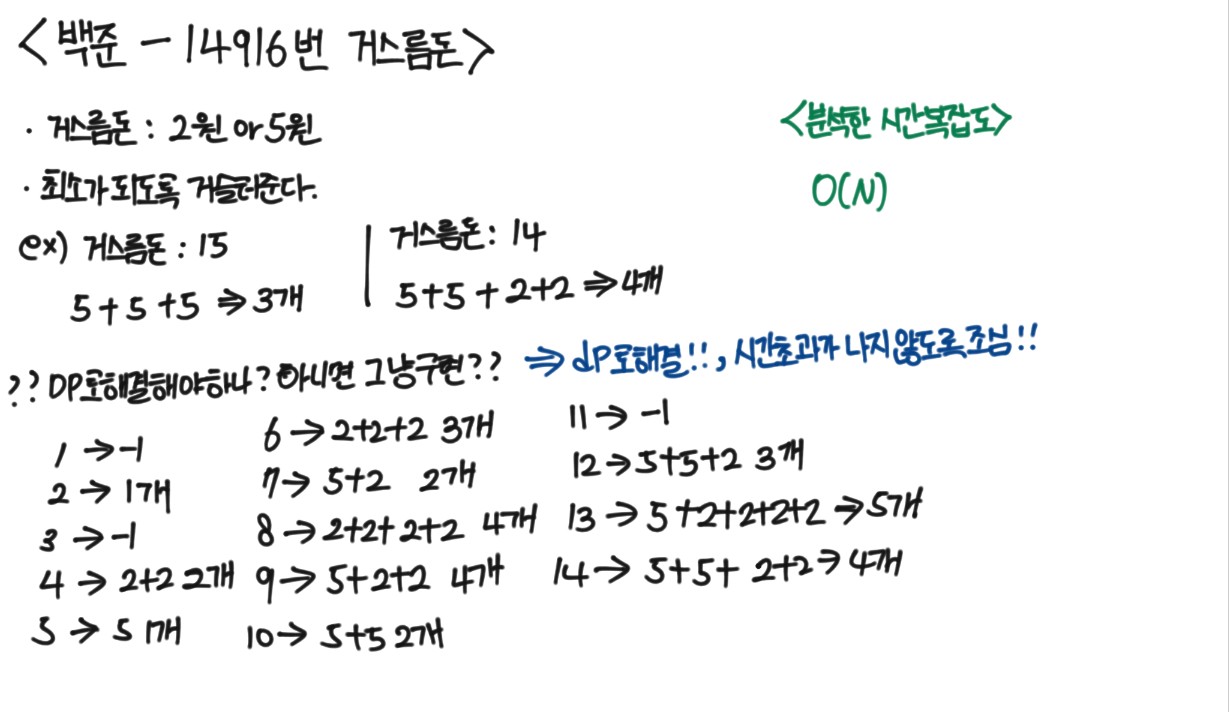 <백준 - 14916번 거스름돈>
· 거스름돈 : 2원 or 5원
· 최소가 되도록 거슬러준다.
ex) 거스름돈 : 15
5+5+5 ⇒ 3개
거스름돈 : 14
5+5+2+2 ⇒ 4개
<분석한 시간복잡도>
O(N)
?? DP로 해결해야하나? 아니면 그냥 구현?? ⇒ dP로 해결!!, 시간초과가 나지 않도록 조심!!
1 → -1
2 → 1개
3 → -1
4 → 2+2 2개
5 → 5 1개
6 → 2+2+2 3개
7 → 5+2 2개
8 → 2+2+2+2 4개
9 → 5+2+2 4개
10 → 5+5 2개
11 → -1
12 → 5+5+2 3개
13 → 5+2+2+2+2 → 5개
14 → 5+5+2+2 → 4개